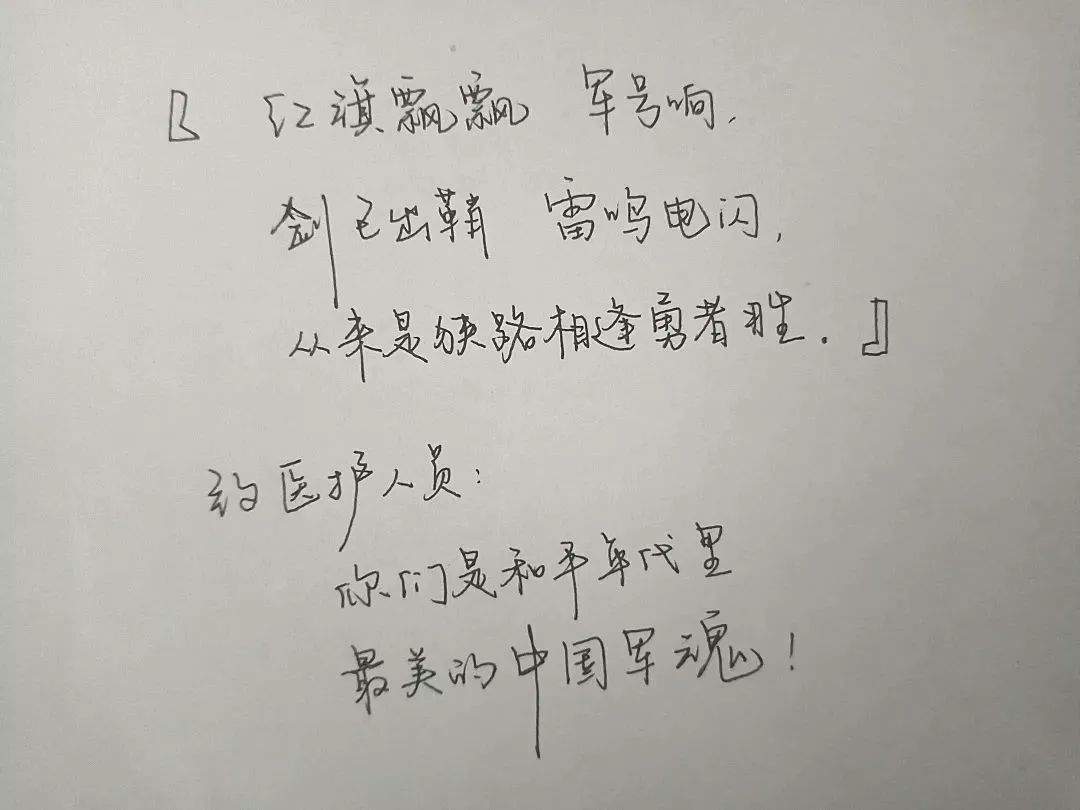 『红旗飘飘 军号响,
剑已出鞘 雷鸣电闪,
从来是狭路相逢勇者胜.』
致医护人员:
你们是和平年代里
最美的中国军魂!